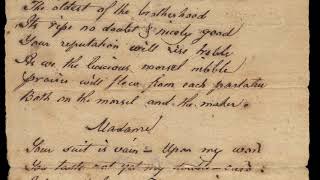 The oldest of the brotherhood
It rips no doubt & nicely good
Your reputation will rise treble
As we the luscious morsel nibble
praises will flow from each partaker
Both on the morsel and the maker.
Madame
Your suit is vain — Upon my word
You taste not yet my